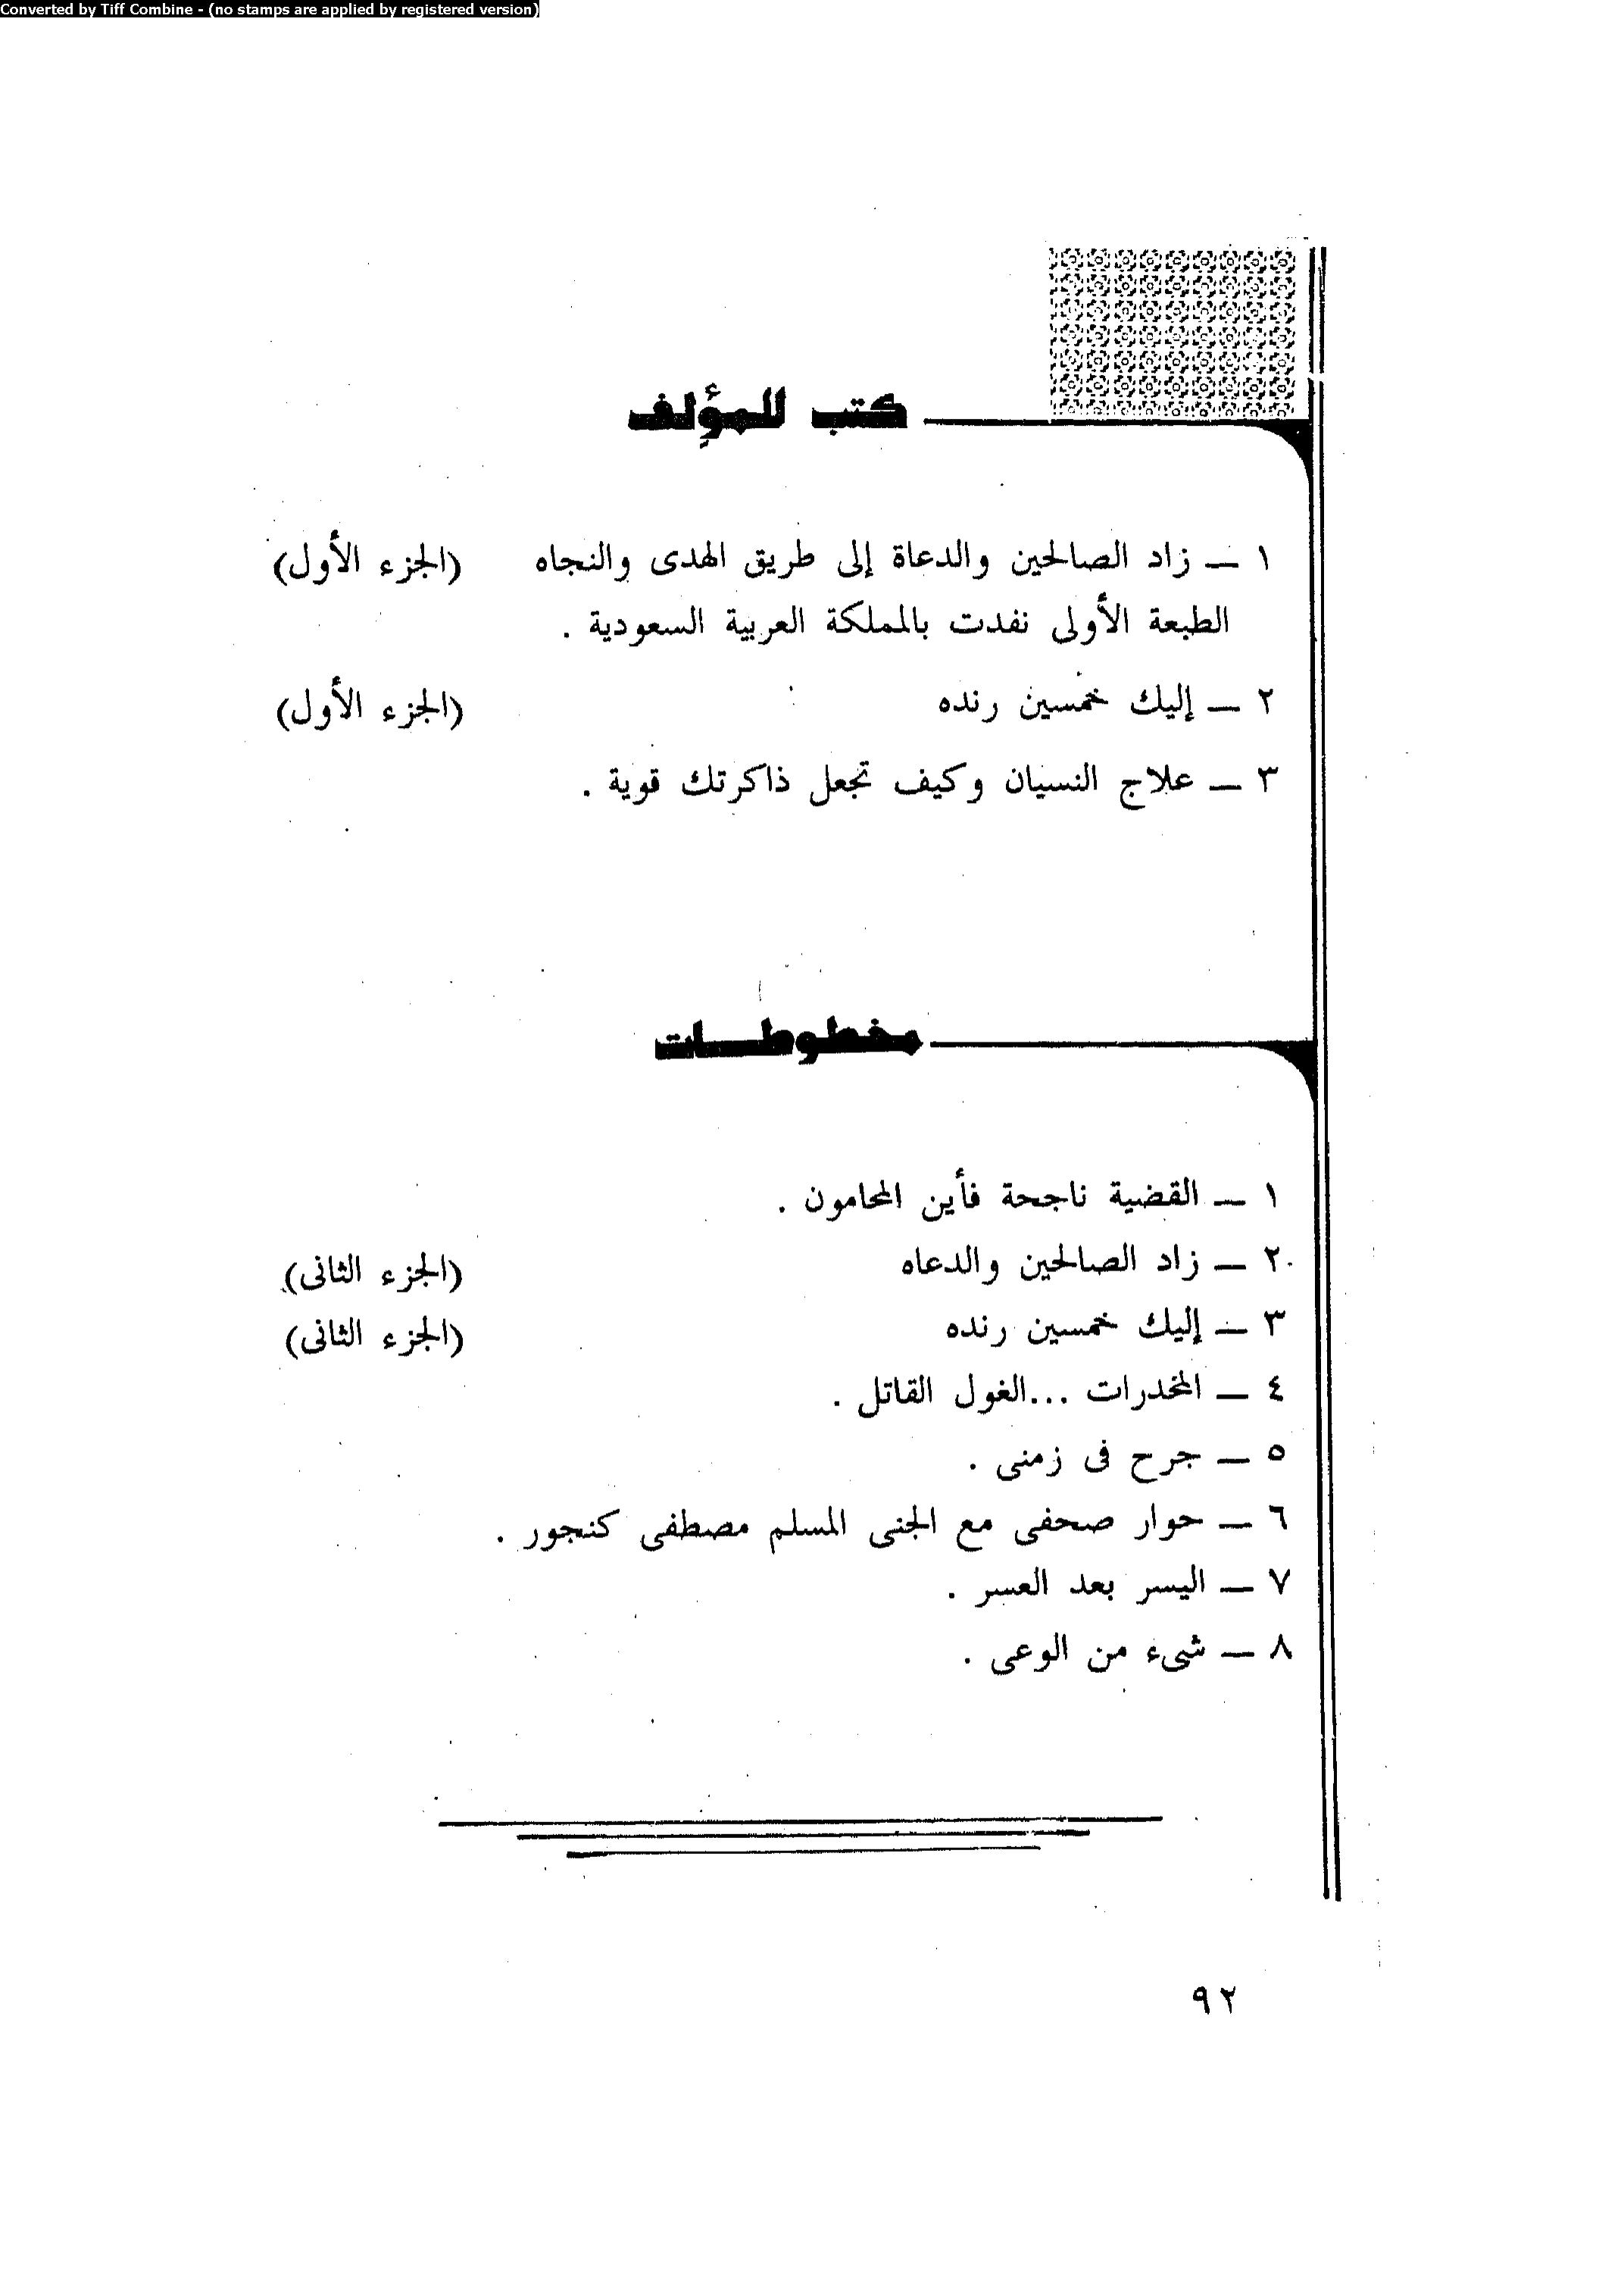 Converted by Tiff Combine - (no stamps are applied by registered version)
كتب للمؤلف
١ — زاد الصالحين والدعاة إلى طريق الهدى والنجاه (الجزء الأول)
الطبعة الأولى نفدت بالمملكة العربية السعودية .
٢ — إليك خمسين رنده (الجزء الأول)
٣ — علاج النسيان وكيف تجعل ذاكرتك قوية .
مخطوطات
١ — القضية ناجحة فأين المحامون .
٢ — زاد الصالحين والدعاه (الجزء الثانى)
٣ — إليك خمسين رنده (الجزء الثانى)
٤ — المخدرات ...الغول القاتل .
٥ — جرح فى زمنى .
٦ — حوار صحفى مع الجنى المسلم مصطفى كنجور .
٧ — اليسر بعد العسر .
٨ — شىء من الوعى .
٩٢